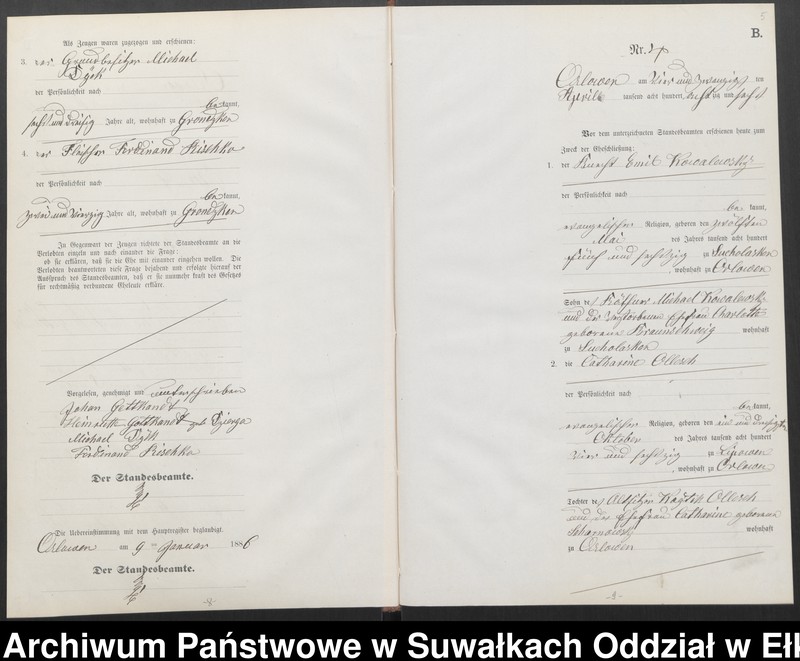 Als Zeugen waren zugezogen und erschienen:
3. der Grundbesitzer Michael
Dyck
der Persönlichkeit nach
bekannt,
sechs und dreißig Jahre alt, wohnhaft zu Grondzken
4. der Fleischer Ferdinand Rischko
der Persönlichkeit nach
bekannt,
zwei und vierzig Jahre alt, wohnhaft zu Grondzken
In Gegenwart der Zeugen richtete der Standesbeamte an die
Verlobten einzeln und nach einander die Frage:
ob sie erklären, daß sie die Ehe mit einander eingehen wollen. Die
Verlobten beantworteten diese Frage bejahend und erfolgte hierauf der
Ausspruch des Standesbeamten, daß er sie nunmehr kraft des Gesetzes
für rechtmäßig verbundene Eheleute erkläre.
Vorgelesen, genehmigt und unterschrieben
Johan Gotthandt
Gotthandt geb
Michael
Ferdinand Rischko
Der Standesbeamte.
Die Uebereinstimmung mit dem Hauptregister beglaubigt.
Orlowen am 9 ten Januar 1886
Der Standesbeamte.
-8-
5
B.
Nr. 4
Orlowen am vier und zwanzigsten
April tausend acht hundert achtzig und sechs
Vor dem unterzeichneten Standesbeamten erschienen heute zum
Zweck der Eheschließung:
1. der Knecht Emil Kowalewsky
der Persönlichkeit nach
bekannt,
evangelischer Religion, geboren den zwölften
Mai des Jahres tausend acht hundert
fünf und sechszig zu Sucholasken
, wohnhaft zu Orlowen
Sohn des Käthner Michael Kowalewsky
und der verstorbenen Ehefrau Charlotte
geborene Braunschweig wohnhaft
zu Sucholasken
2. die Catharine Ollesch
der Persönlichkeit nach
bekannt,
evangelischer Religion, geboren den ein und dreißigsten
Oktober des Jahres tausend acht hundert
vier und sechszig zu Lipowen
, wohnhaft zu Orlowen
Tochter des Altsitzer Ollesch
und der Ehefrau Catharine geborene
wohnhaft
zu Orlowen
-9-
Archiwum Państwowe w Suwałkach Oddział w Ełk